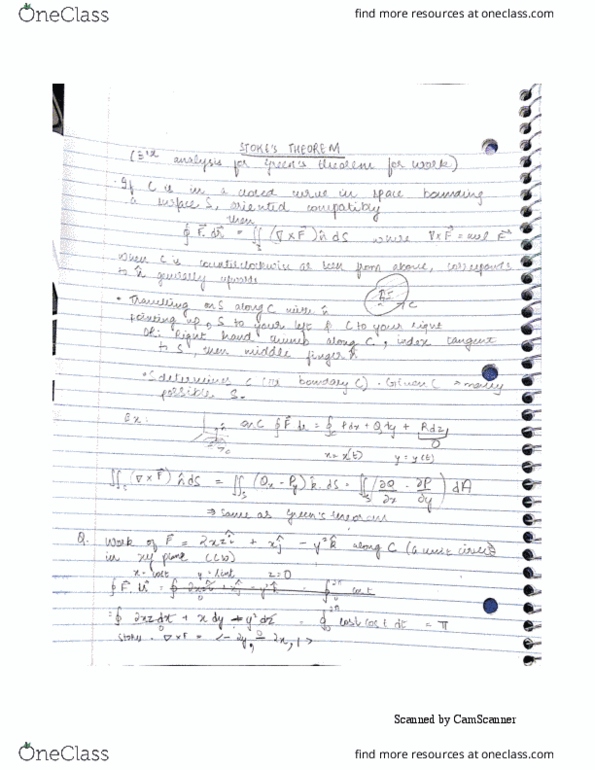 OneClass
find more resources at oneclass.com
STOKE'S THEOREM
analysis for Green's theorem for work)
If C is in a closed curve in space bounding
a surface S, oriented compatibly
then
∮ F⃗. dr⃗ = ∬ (∇×F⃗) n̂ dS where ∇×F⃗ = curl F⃗
When C is counterclockwise as seen from above, corresponds
to n̂ generally upwards
C
• Travelling on S along C
pointing up, S to your left & C to your right
OR: Right hand thumb along C, index tangent
to S, then middle finger n̂
• S determines C (its boundary C). Given C many
possible S.
Ex: on C ∮ F⃗ dr = ∮ Pdx + Qdy + Rdz
0
x = x(t) y = y(t)
∬s (∇×F⃗) n̂ dS = ∬s (Qx - Py) k̂ . dS = ∬s (∂Q/∂x - ∂P/∂y) dA
⇒ same as Green's theorem
Q. Work of F⃗ = 2xzî + xĵ - y²k̂ along C (a unit circle)
in xy plane
x = cost y = sint z = 0
∮ 2xz dx + x dy - y² dz ∮ cost cost dt = π
Stokes . ∇×F = <-2y, 2x, 1>
Scanned by CamScanner
OneClass
find more resources at oneclass.com